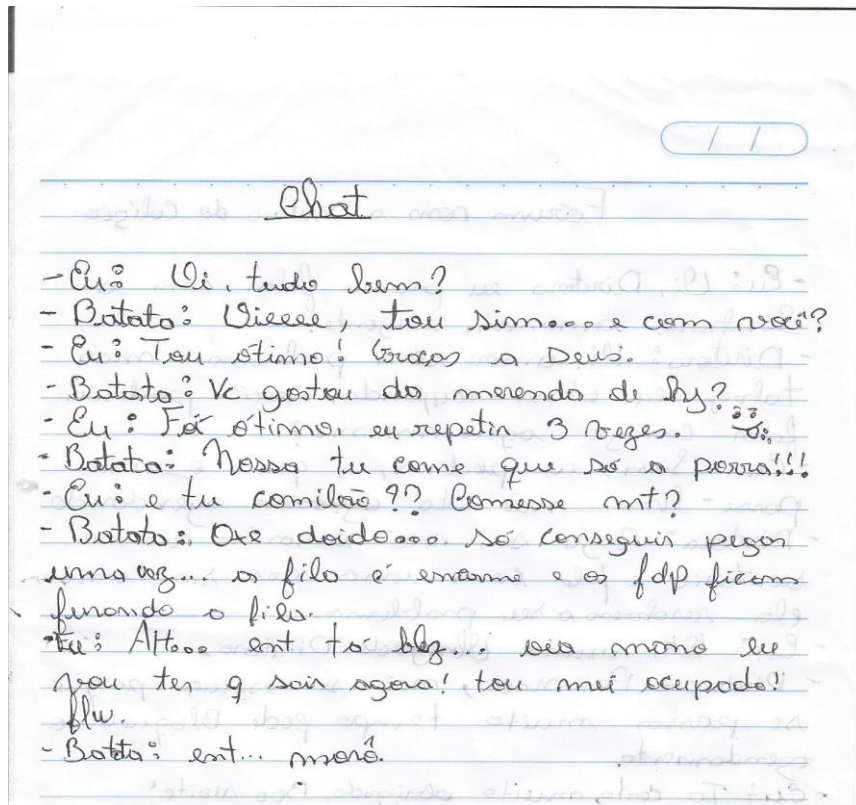 Chat
- Eu: Oi, tudo bem?
- Batata: Oieeee, tou sim... e com você?
- Eu: Tou ótimo! Graças a Deus.
- Batata: Vc gostou da merenda de hj?
- Eu: Foi ótimo eu repetir 3 vezes.
- Batata: Nossa tu come que só a porra!!!
- Eu: e tu comilão?? Comesse mt?
- Batata: Oxe doido... só conseguir pegar
uma vez... a fila é enorme e os fdp ficam
furando a fila.
- Eu: AH... ent tá blz... oia mano eu
vou ter q sair agora! tou mei ocupado!
flw.
- Batata: ent... morô.